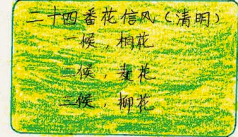 二十四番花信风(清明)
候,桐花
候,麦花
二候,柳花